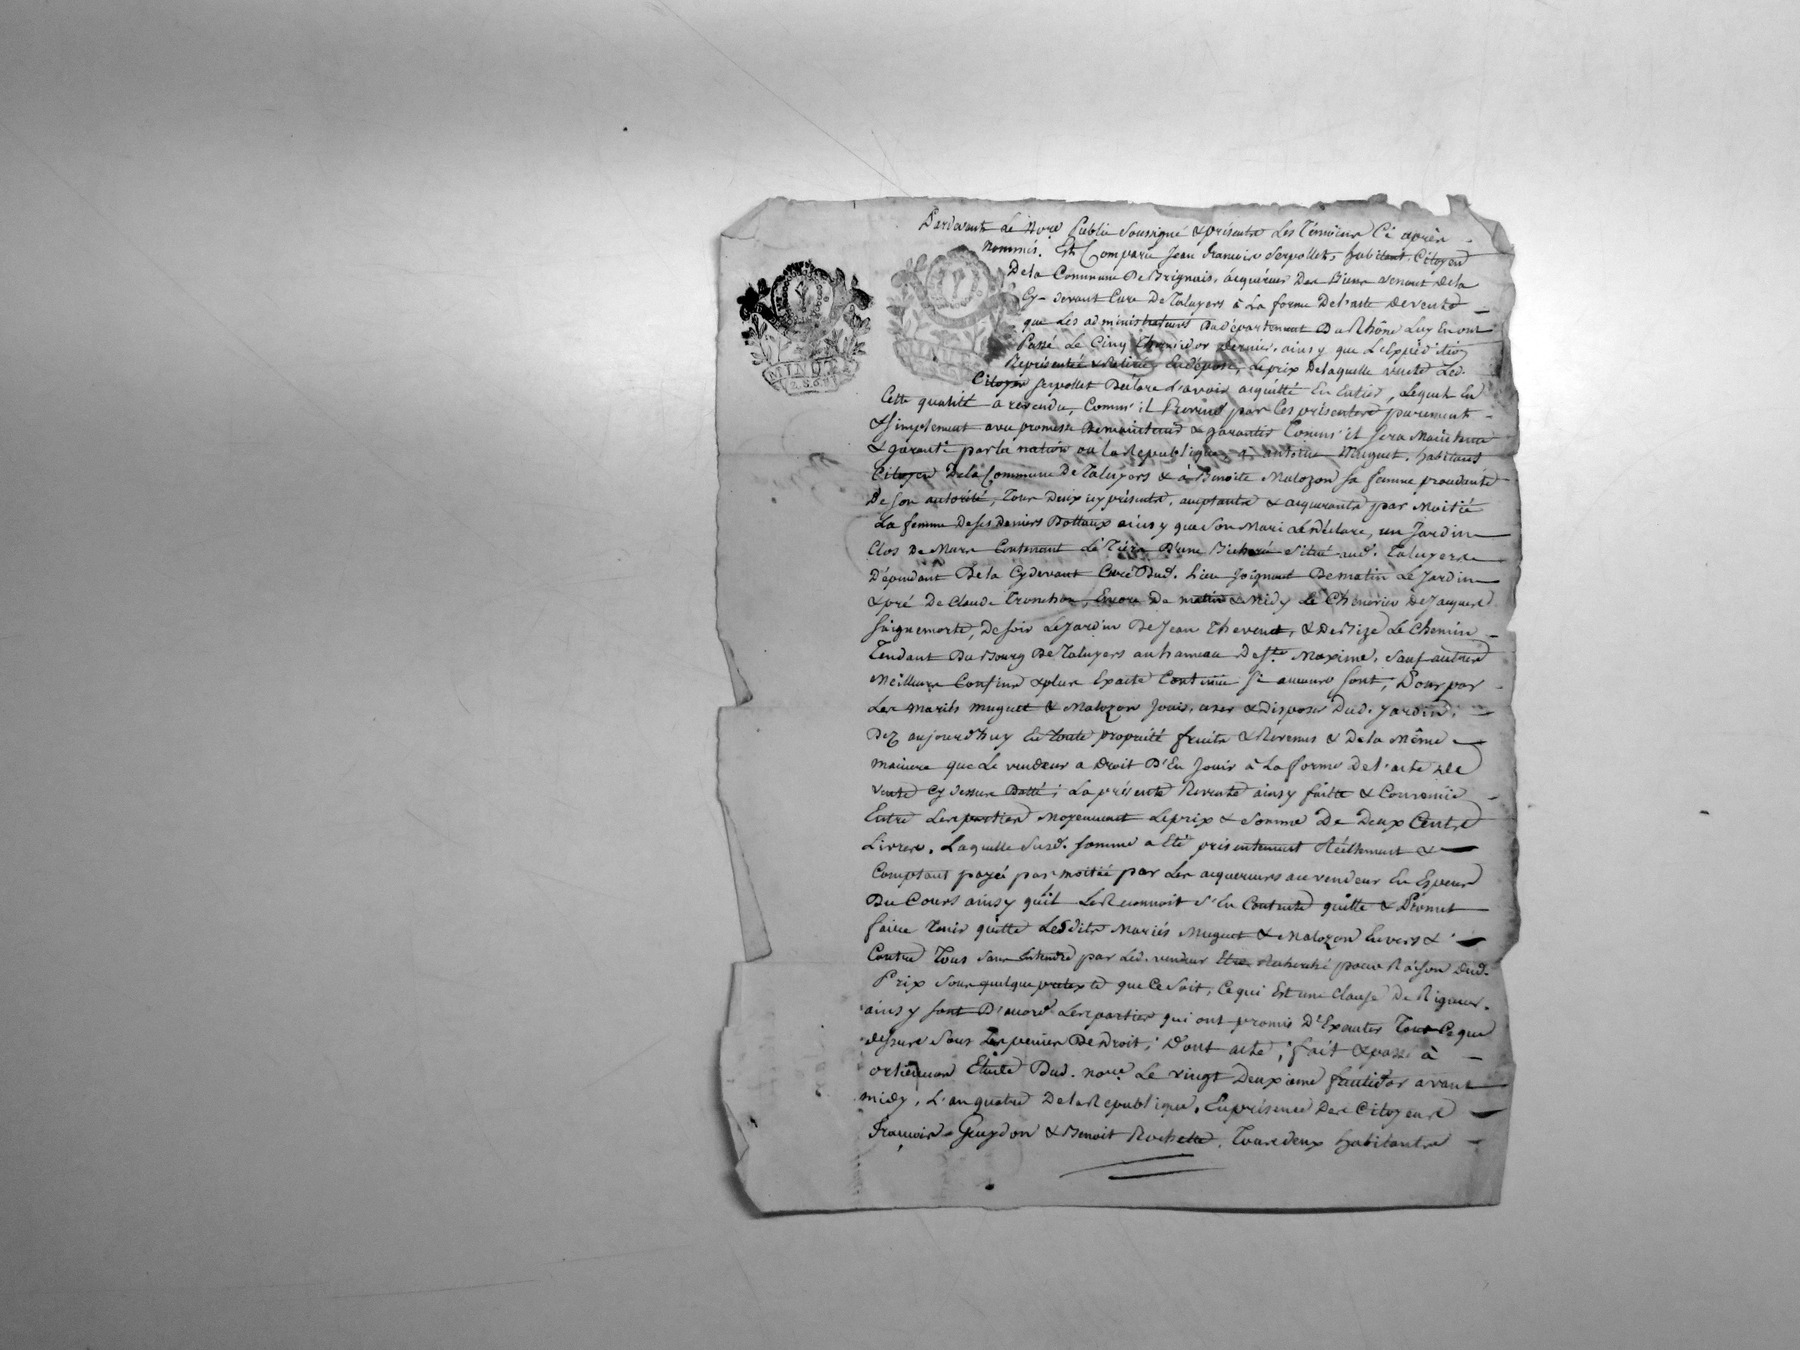 Pardevant Le Nore Public Soussigné & présents Les Témoins Ci après
nommés. Est Comparu Jean François Serpollet, habitant Citoyen
De la Commune De Brignais, acquéreur Des Biens venant de la
Cy-devant Cure De Taluyers à La forme De l'acte de vente
que Les administrateurs Du département Du Rhône Luy En ont
Passé Le Cinq Thermidor dernier, ainsy que L'Expédition
Représentée & Retirée Le prix De laquelle vente Led.
Citoyen Serpollet Déclare d'avoir acquitté En Entier, Lequel En
Cette qualité a revendu, Comm' il Revend par Ces présentes purement
& Simplement avec promesse De maintenir & garantir Comm' il Sera Maintenu
& garanti par la nation ou la Republique, à antoine Muguet, habitant
Citoyen De la Commune De Taluyers & à Benoite Malozon sa femme procédante
De son autorité, Tous Deux icy présents, acceptants & acquerants par Moitié
La femme De ses Deniers Dottaux ainsy que Son Mari Le déclare, un Jardin
Clos De Murs Contenant Le Tiers D'une Bicherée Situé aud. Taluyers
Dépendant De la Cydevant Cure Dud. Lieu Joignant De matin Le Jardin
& pré De Claude Tronchon, Encore De matin & Midy Le Chenevier De Jacques
Saignemorte, De soir Le Jardin De Jean Thevenet, & De Bize Le Chemin
Tendant Du Bourg De Taluyers au hameau De Ste. Maxime, Sauf autres
Meilleurs Confins & plus Exacte Contenue Si aucuns sont, Pour par
Les mariés Muguet & Malozon Jouir, user & Disposer Dud. Jardin,
Dez aujourd'huy En Toute propriété fruits & Revenus & De la Même
maniere que Le vendeur a Droit D'En Jouir à La forme De l'acte de
vente Cy dessus Datté ; La présente Revente ainsy faitte & Convenüe
Entre Les parties Moyennant Le prix & Somme De Deux Cents
Livres. Laquelle Susd. somme a Eté présentement Réellement &
Comptant payée par moitié par Les acquereurs au vendeur En Espèces
Du Cours ainsy qu'il Le Reconnoit S'En Contente quitte & Promet
faire Tenir quitte Lesdits Mariés Muguet & Malozon Envers &
Contre Tous Sans Entendre par Led. vendeur Etre Recherché pour Raison Dud.
Prix Sous quelque prétexte que Ce Soit, Ce qui Est une Clause De Rigueur.
ainsy sont D'accord Les parties qui ont promis D'Exécuter Tout Ce que
dessus Sous Les peines De Droit ; D'ont acte ; fait & passé à
orlienas Etude Dud. nore. Le vingt Deuxième fructidor avant
midy, L'an quatre De la Republique, En présence Des Citoyens
François Guydon & Benoit Rochette, Tous deux habitants
MINUTE